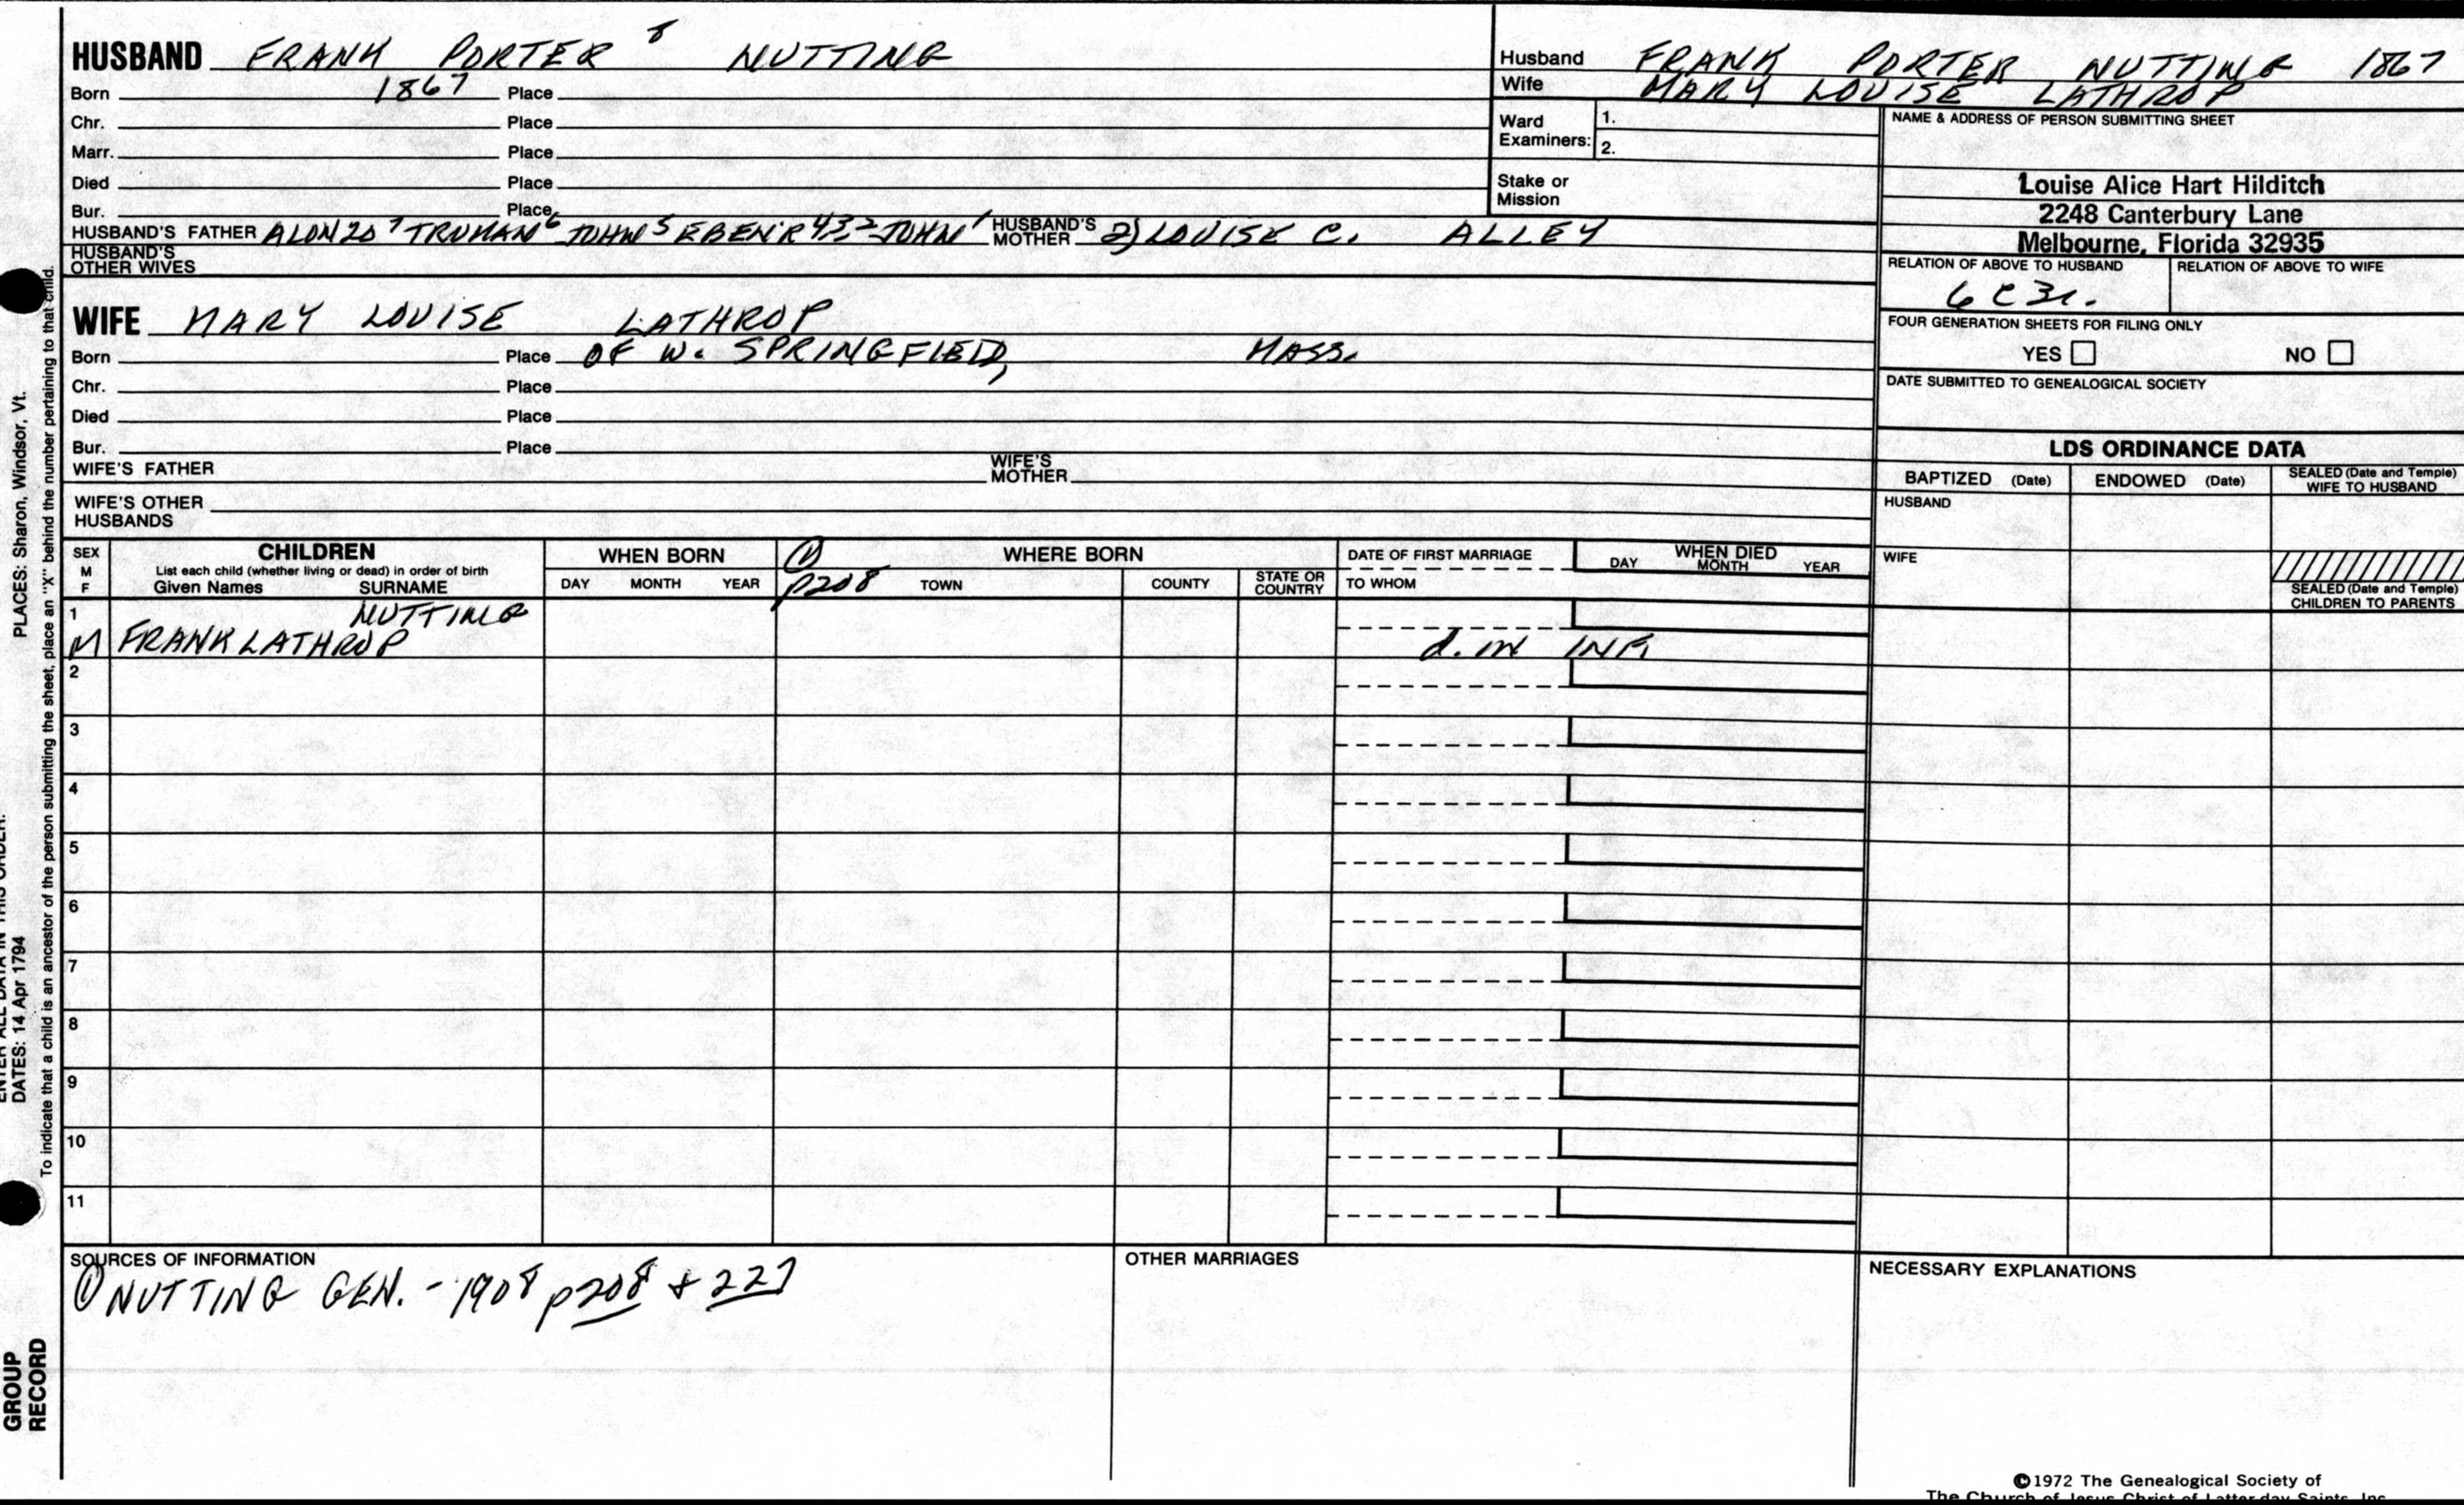 HUSBAND FRANK PORTER 8 NUTTING
Born 1867 Place
Chr. Place
Marr. Place
Died Place
Bur. Place
HUSBAND'S FATHER ALONZO 7 TRUMAN 6 JOHN 5 EBEN'R 4 3 2 JOHN 1 HUSBAND'S MOTHER 2) LOUISE C. ALLEY
HUSBAND'S OTHER WIVES
WIFE MARY LOUISE LATHROP
Born Place OF W. SPRINGFIELD, MASS.
Chr. Place
Died Place
Bur. Place
WIFE'S FATHER WIFE'S MOTHER
WIFE'S OTHER HUSBANDS
Husband FRANK PORTER NUTTING 1867
Wife MARY LOUISE LATHROP
Ward Examiners: 1.
2.
Stake or Mission
NAME & ADDRESS OF PERSON SUBMITTING SHEET
Louise Alice Hart Hilditch
2248 Canterbury Lane
Melbourne, Florida 32935
RELATION OF ABOVE TO HUSBAND RELATION OF ABOVE TO WIFE
6 C 3 r.
FOUR GENERATION SHEETS FOR FILING ONLY
YES NO
DATE SUBMITTED TO GENEALOGICAL SOCIETY
LDS ORDINANCE DATA
BAPTIZED (Date) ENDOWED (Date) SEALED (Date and Temple) WIFE TO HUSBAND
HUSBAND
WIFE
SEALED (Date and Temple) CHILDREN TO PARENTS
SEX M F
CHILDREN
List each child (whether living or dead) in order of birth
Given Names SURNAME
WHEN BORN
DAY MONTH YEAR
① p208
WHERE BORN
TOWN COUNTY STATE OR COUNTRY
DATE OF FIRST MARRIAGE
TO WHOM
WHEN DIED
DAY MONTH YEAR
1 NUTTING
M FRANK LATHROP d. in INF.
2
3
4
5
6
7
8
9
10
11
SOURCES OF INFORMATION
① NUTTING GEN. - 1908 p208 + 227
OTHER MARRIAGES
NECESSARY EXPLANATIONS
©1972 The Genealogical Society of
The Church of Jesus Christ of Latter-day Saints, Inc.
ENTER ALL DATA IN THIS ORDER:
DATES: 14 Apr 1794 PLACES: Sharon, Windsor, Vt.
To indicate that a child is an ancestor of the person submitting the sheet, place an "X" behind the number pertaining to that child.
GROUP
RECORD